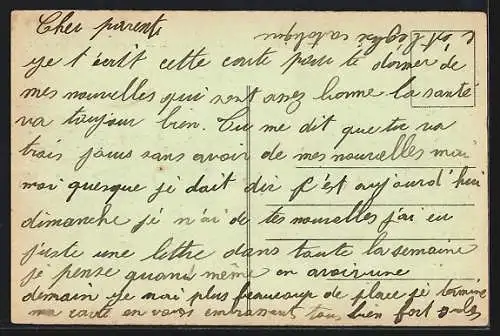 Cher parents
je t'écrit cette carte pour te donner de
mes nouvelles qui sont assez bonne la santé
va toujour bien. Tu me dit que tu va
trois jours sans avoir de mes nouvelles moi
moi quesque je doit dir c'est aujourd'hui
dimanche je n'ai de tes nouvelles j'ai eu
juste une lettre dans toute la semaine
je pense quand même en avoir une
demain je n'ai plus beaucoup de place je termine
ma carte en vous embrassant tous bien fort